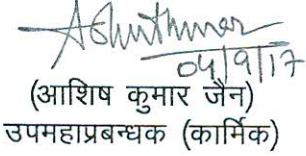 04/9/17
(आशिष कुमार जैन)
उपमहाप्रबन्धक (कार्मिक)